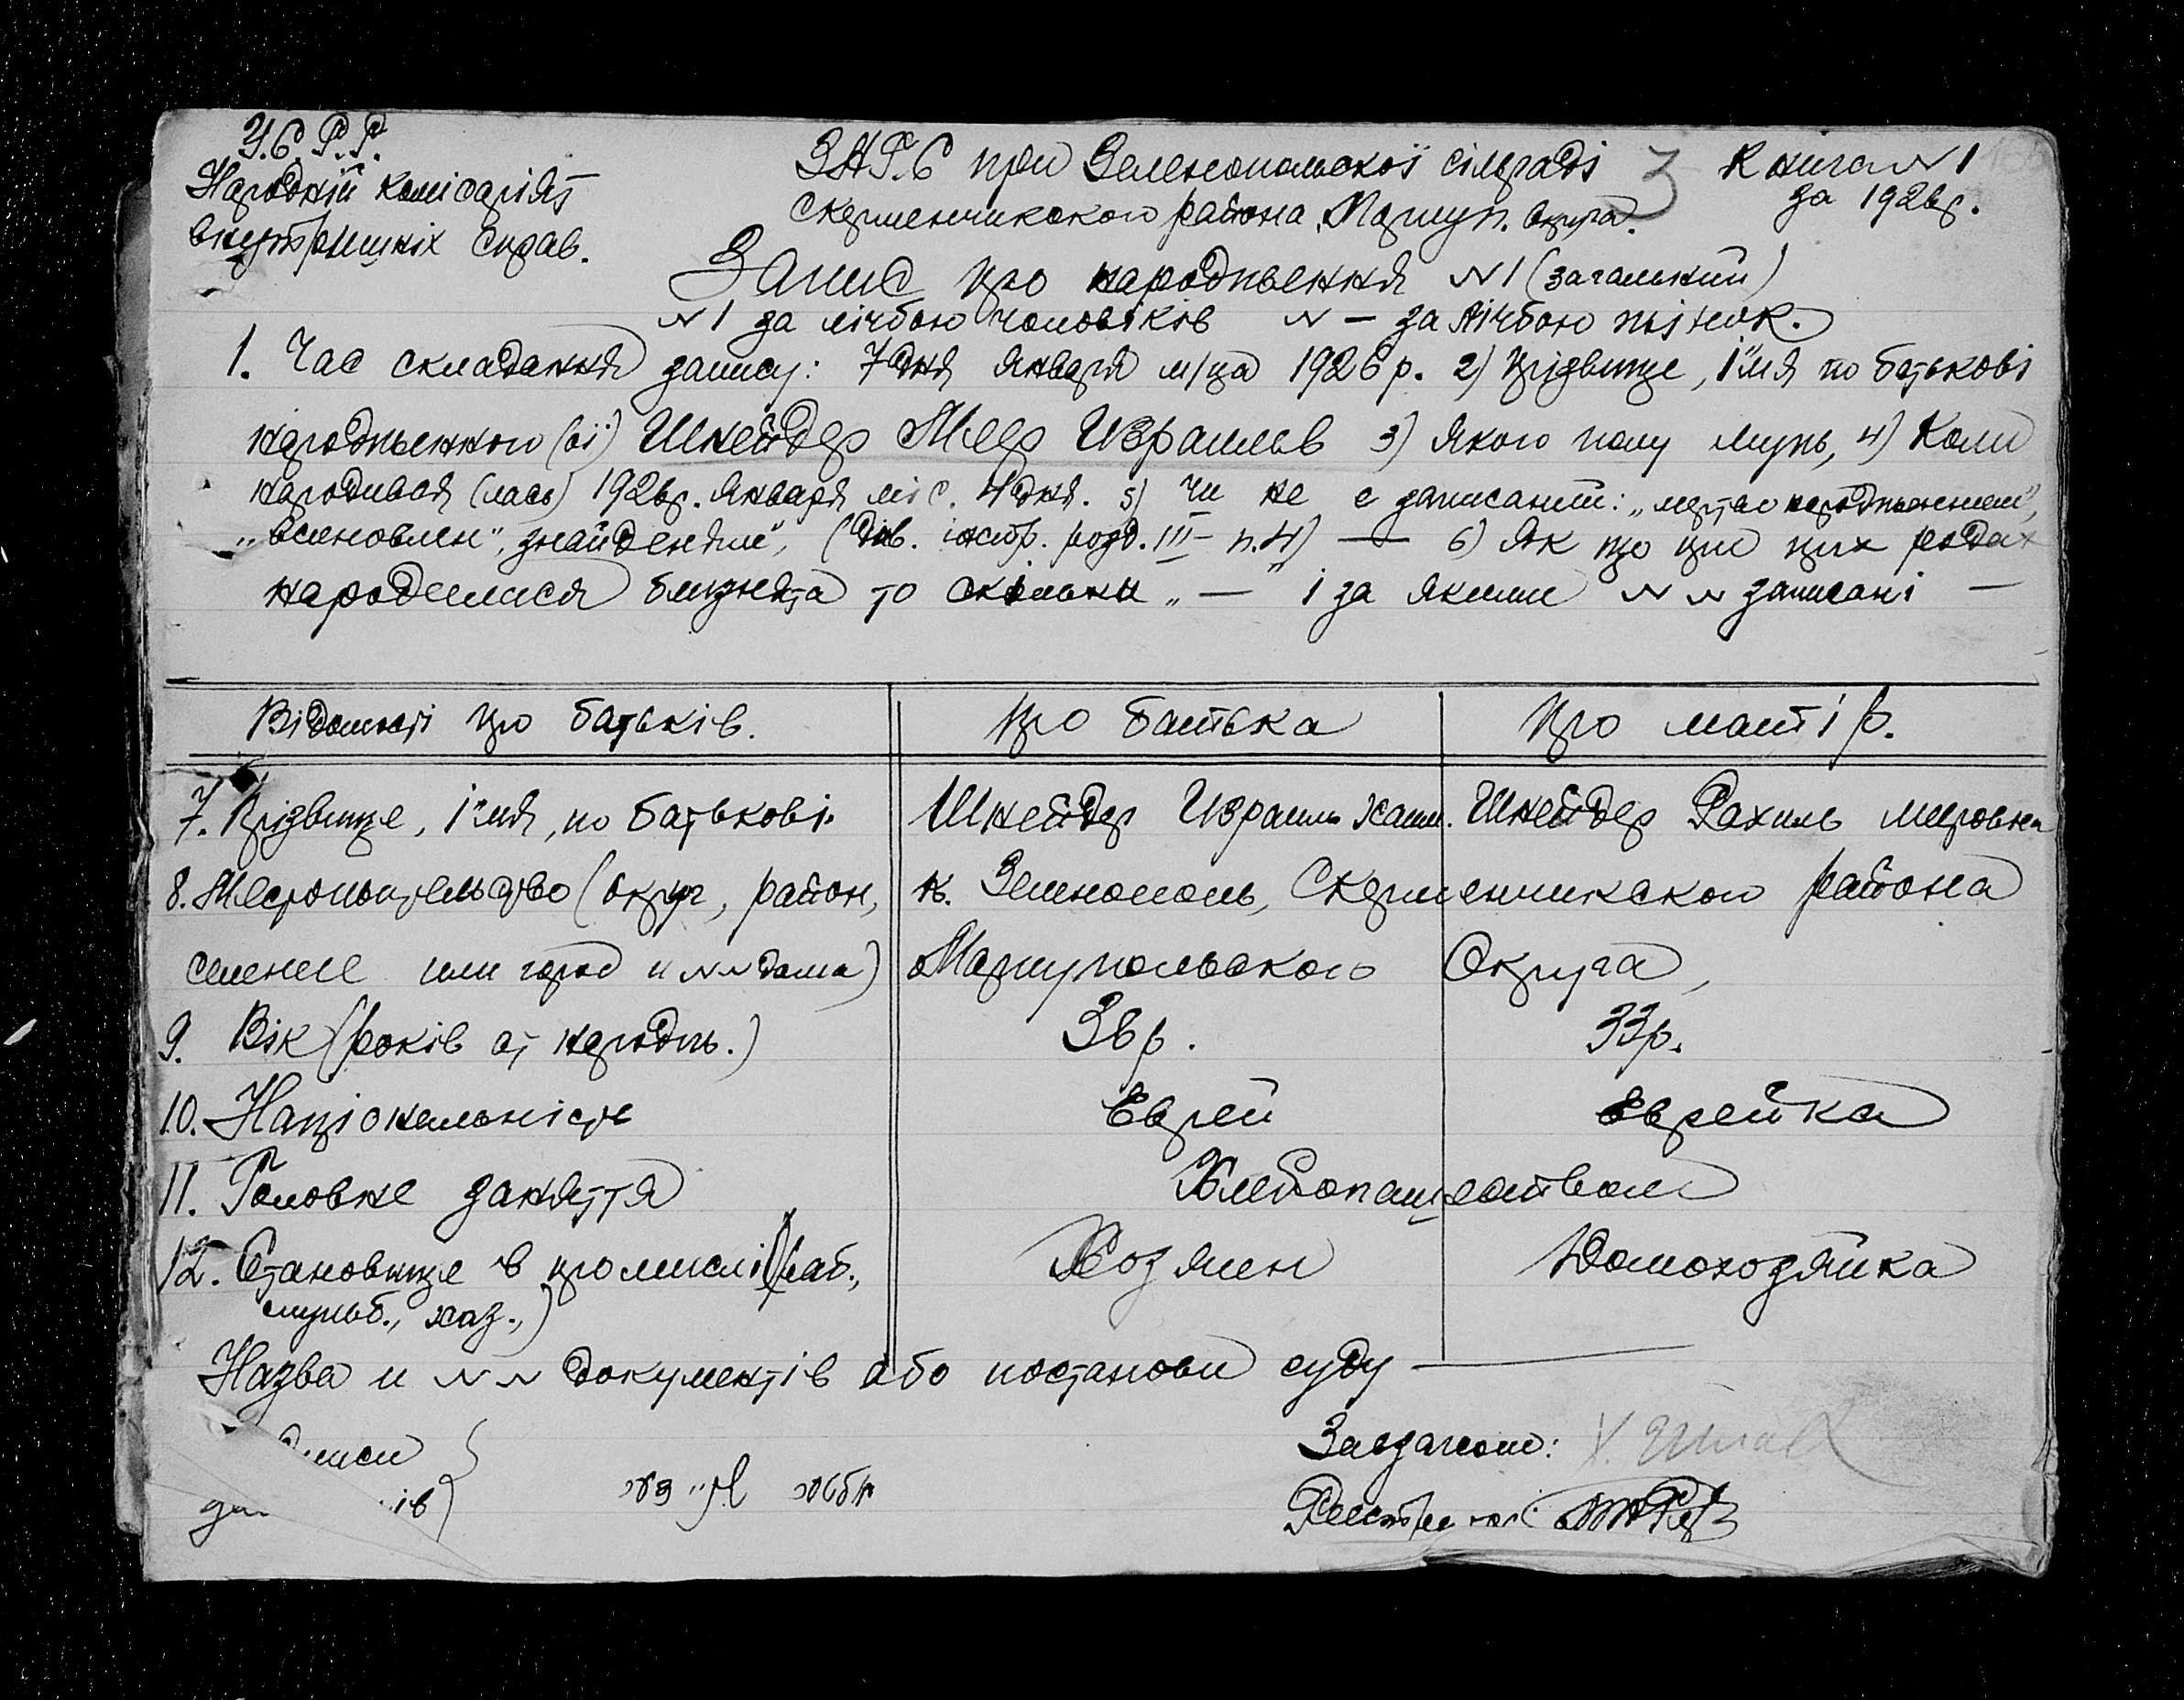 У.С.Р.Р.
Народній комісаріят
внутрішніх справ.
ЗАГ.С при Зеленопольскої сільраді 3
Керменчикского района, Мариуп. округа.
Книга N 1
за 1926р.
Запис про народження N 1 (загальний)
N 1 за лічбою чоловіків N — за лічбою жінок.
1. Час складання запису: 7 дня Января м/ца 1926 р. 2) Прізвище, ім'я по батькові
народженного (ої) Шнейдер Меер Израилев 3) Якого полу муж, 4) Коли
народився (лась) 1926р. Января міс. 4 дня. 5) Чи не є записаний: „мертво народженним",
„всиновлен", знайденям", (див. інстр. розд. III п. 4) — 6) Як що при цих родах
народилися близнята то скільки „—" і за якими N N записані —
Відомості про батьків. Про батька Про матір.
7. Прізвище, ім'я, по батькові. Шнейдер Израиль Хаим. Шнейдер Рахиль Меровна
8. Местожительство (округ, район, к. Зеленополь, Керменчикского района
селение или город и N N дома) Мариупольского Округа,
9. Вік (років от народж.) 36 р. 33 р.
10. Національність Еврей Еврейка
11. Головне заняття Хлебопашеством
12. Становище в промислі (раб., Хозяин Домохозяйка
служб., хаз.,)
Назва и N N документів або постанови суду —
Завзагсом: